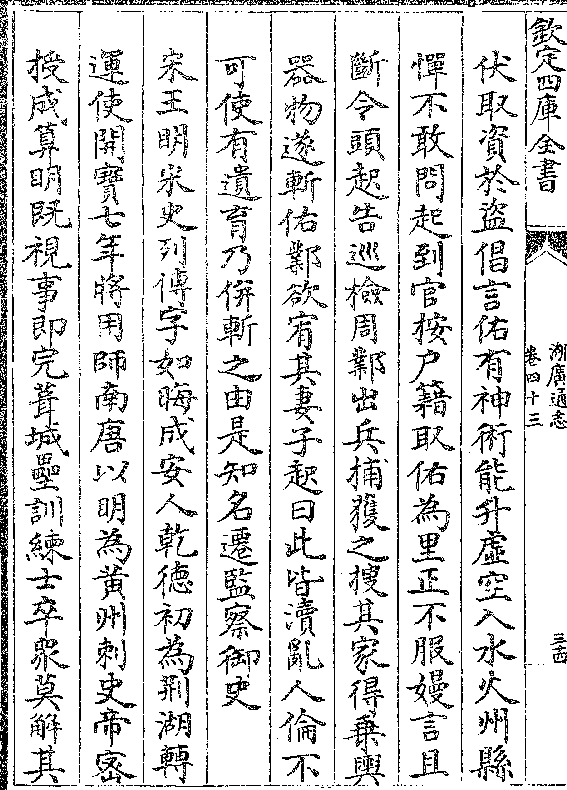 欽定四庫全書
湖廣通志
卷四十三
三十四
伏取資於盜倡言佑有神術能升虛空入水火州縣
憚不敢問起到官按户籍取佑為里正不服嫚言且
斷令頭起告巡檢周鄴出兵捕獲之搜其家得乗輿
器物遂斬佑鄴欲宥其妻子起曰此皆瀆亂人倫不
可使有遺育乃併斬之由是知名遷監察御史
宋王明宋史列傳字如晦成安人乾德初為荆湖轉
運使開寳七年將用師南唐以明為黄州刺史帝宻
授成算明既視事即完葺城壘訓練士卒衆莫解其